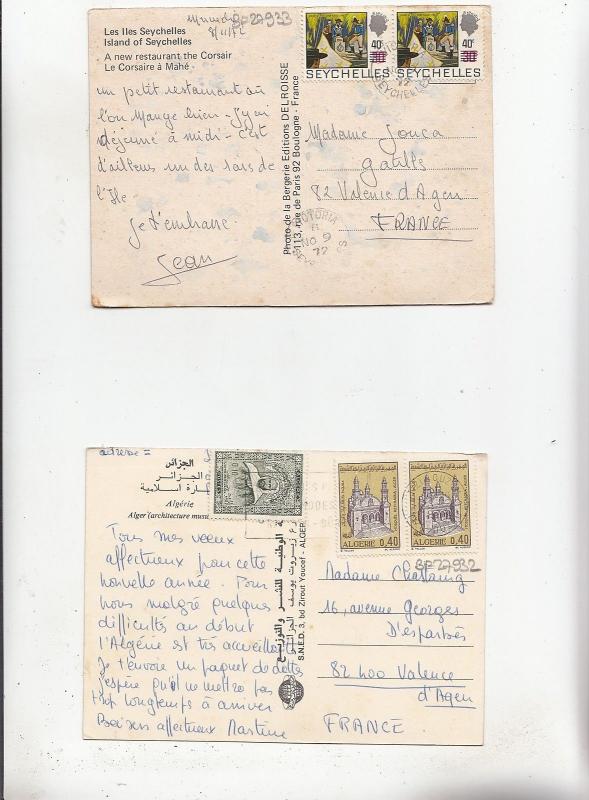 Les Iles Seychelles
Island of Seychelles
A new restaurant the Corsair
Le Corsaire à Mahé
8/11/72
BP 27933
40c
40c
SEYCHELLES
SEYCHELLES
un petit restaurant où
l'on mange bien - J'y ai
déjeuné à midi - C'est
d'ailleurs un des rares de
l'île
Je t'embrasse
Jean
Photo de la Bergerie Editions DELROISSE
113, rue de Paris 92 Boulogne - France
Madame Jouca
gatille
82 Valence d'Agen
FRANCE
VICTORIA
NO 9
72
SEYCHELLES
adresse =
الجزائر
الجزائر
عمارة اسلامية
Algérie
Alger (architecture musu
ALGERIE 0,40
ALGERIE 0,40
BP 27932
Tous mes voeux
affectueux pour cette
nouvelle année. Pour
nous malgré quelques
difficultés au début
l'Algérie est très accueillan
Je t'envoie un paquet de dattes
j'espère qu'il ne mettra pas
trop longtemps à arriver
Baisers affectueux Martine
الوطنية للنشر والتوزيع
زيروت يوسف الجزائر
S.N.E.D. 3, bd Zirout Youcef - ALGER
Madame Chassaing
16, avenue Georges
D'esparbès
82400 Valence
d'Agen
FRANCE